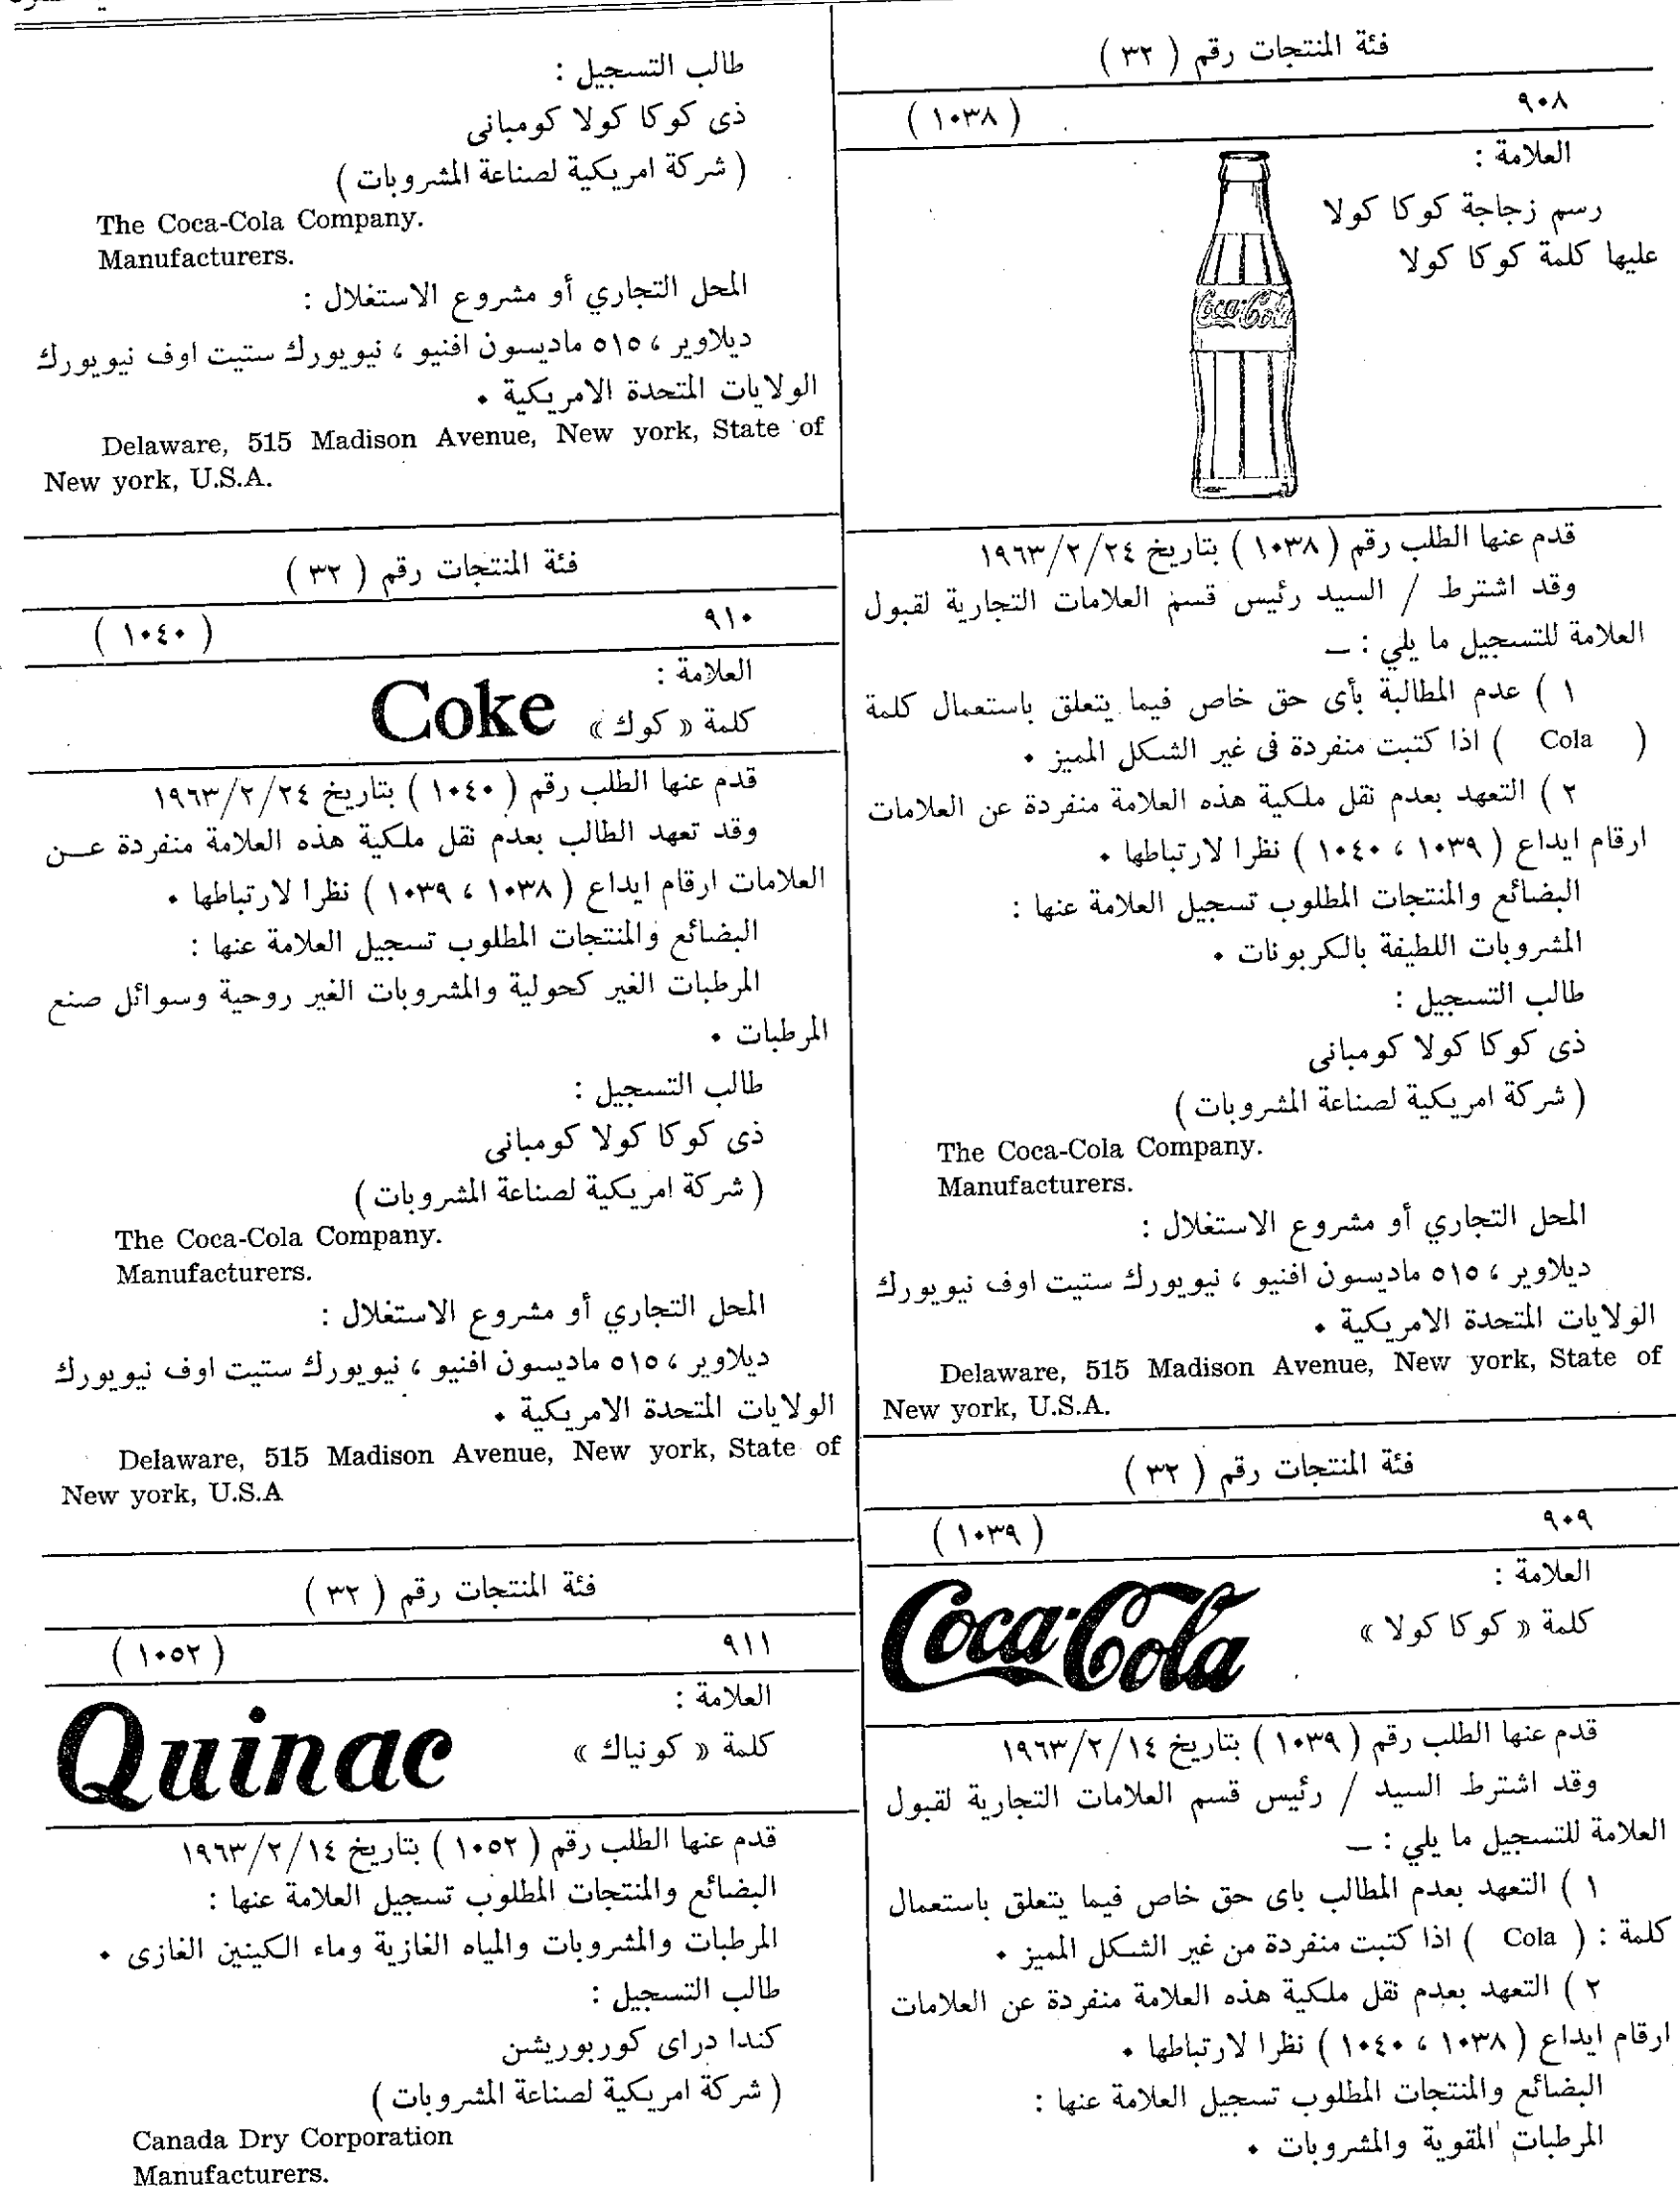 فئة المنتجات رقم ( ٣٢ )
٩٠٨ ( ١٠٣٨ )
العلامة :
رسم زجاجة كوكا كولا
عليها كلمة كوكا كولا
Coca-Cola
قدم عنها الطلب رقم ( ١٠٣٨ ) بتاريخ ١٩٦٣/٢/٢٤
وقد اشترط / السيد رئيس قسم العلامات التجارية لقبول
العلامة للتسجيل ما يلي : —
١ ) عدم المطالبة بأى حق خاص فيما يتعلق باستعمال كلمة
( Cola ) اذا كتبت منفردة فى غير الشكل المميز ٠
٢ ) التعهد بعدم نقل ملكية هذه العلامة منفردة عن العلامات
ارقام ايداع ( ١٠٣٩ ، ١٠٤٠ ) نظرا لارتباطها ٠
البضائع والمنتجات المطلوب تسجيل العلامة عنها :
المشروبات اللطيفة بالكربونات ٠
طالب التسجيل :
ذى كوكا كولا كومبانى
( شركة امريكية لصناعة المشروبات )
The Coca-Cola Company.
Manufacturers.
المحل التجاري أو مشروع الاستغلال :
ديلاوير ، ٥١٥ ماديسون افنيو ، نيويورك ستيت اوف نيويورك
الولايات المتحدة الامريكية ٠
Delaware, 515 Madison Avenue, New york, State of
New york, U.S.A.
فئة المنتجات رقم ( ٣٢ )
٩٠٩ ( ١٠٣٩ )
العلامة :
كلمة « كوكا كولا »
Coca-Cola
قدم عنها الطلب رقم ( ١٠٣٩ ) بتاريخ ١٩٦٣/٢/١٤
وقد اشترط السيد / رئيس قسم العلامات التجارية لقبول
العلامة للتسجيل ما يلي : —
١ ) التعهد بعدم المطالب باى حق خاص فيما يتعلق باستعمال
كلمة : ( Cola ) اذا كتبت منفردة من غير الشكل المميز ٠
٢ ) التعهد بعدم نقل ملكية هذه العلامة منفردة عن العلامات
ارقام ايداع ( ١٠٣٨ ، ١٠٤٠ ) نظرا لارتباطها ٠
البضائع والمنتجات المطلوب تسجيل العلامة عنها :
المرطبات المقوية والمشروبات ٠
طالب التسجيل :
ذى كوكا كولا كومبانى
( شركة امريكية لصناعة المشروبات )
The Coca-Cola Company.
Manufacturers.
المحل التجاري أو مشروع الاستغلال :
ديلاوير ، ٥١٥ ماديسون افنيو ، نيويورك ستيت اوف نيويورك
الولايات المتحدة الامريكية ٠
Delaware, 515 Madison Avenue, New york, State of
New york, U.S.A.
فئة المنتجات رقم ( ٣٢ )
٩١٠ ( ١٠٤٠ )
العلامة :
كلمة « كوك » Coke
قدم عنها الطلب رقم ( ١٠٤٠ ) بتاريخ ١٩٦٣/٢/٢٤
وقد تعهد الطالب بعدم نقل ملكية هذه العلامة منفردة عـــن
العلامات ارقام ايداع ( ١٠٣٨ ، ١٠٣٩ ) نظرا لارتباطها ٠
البضائع والمنتجات المطلوب تسجيل العلامة عنها :
المرطبات الغير كحولية والمشروبات الغير روحية وسوائل صنع
المرطبات ٠
طالب التسجيل :
ذى كوكا كولا كومبانى
( شركة امريكية لصناعة المشروبات )
The Coca-Cola Company.
Manufacturers.
المحل التجاري أو مشروع الاستغلال :
ديلاوير ، ٥١٥ ماديسون افنيو ، نيويورك ستيت اوف نيويورك
الولايات المتحدة الامريكية ٠
Delaware, 515 Madison Avenue, New york, State of
New york, U.S.A
فئة المنتجات رقم ( ٣٢ )
٩١١ ( ١٠٥٢ )
العلامة :
كلمة « كونياك » Quinac
قدم عنها الطلب رقم ( ١٠٥٢ ) بتاريخ ١٩٦٣/٢/١٤
البضائع والمنتجات المطلوب تسجيل العلامة عنها :
المرطبات والمشروبات والمياه الغازية وماء الكينين الغازى ٠
طالب التسجيل :
كندا دراى كوربوريشن
( شركة امريكية لصناعة المشروبات )
Canada Dry Corporation
Manufacturers.